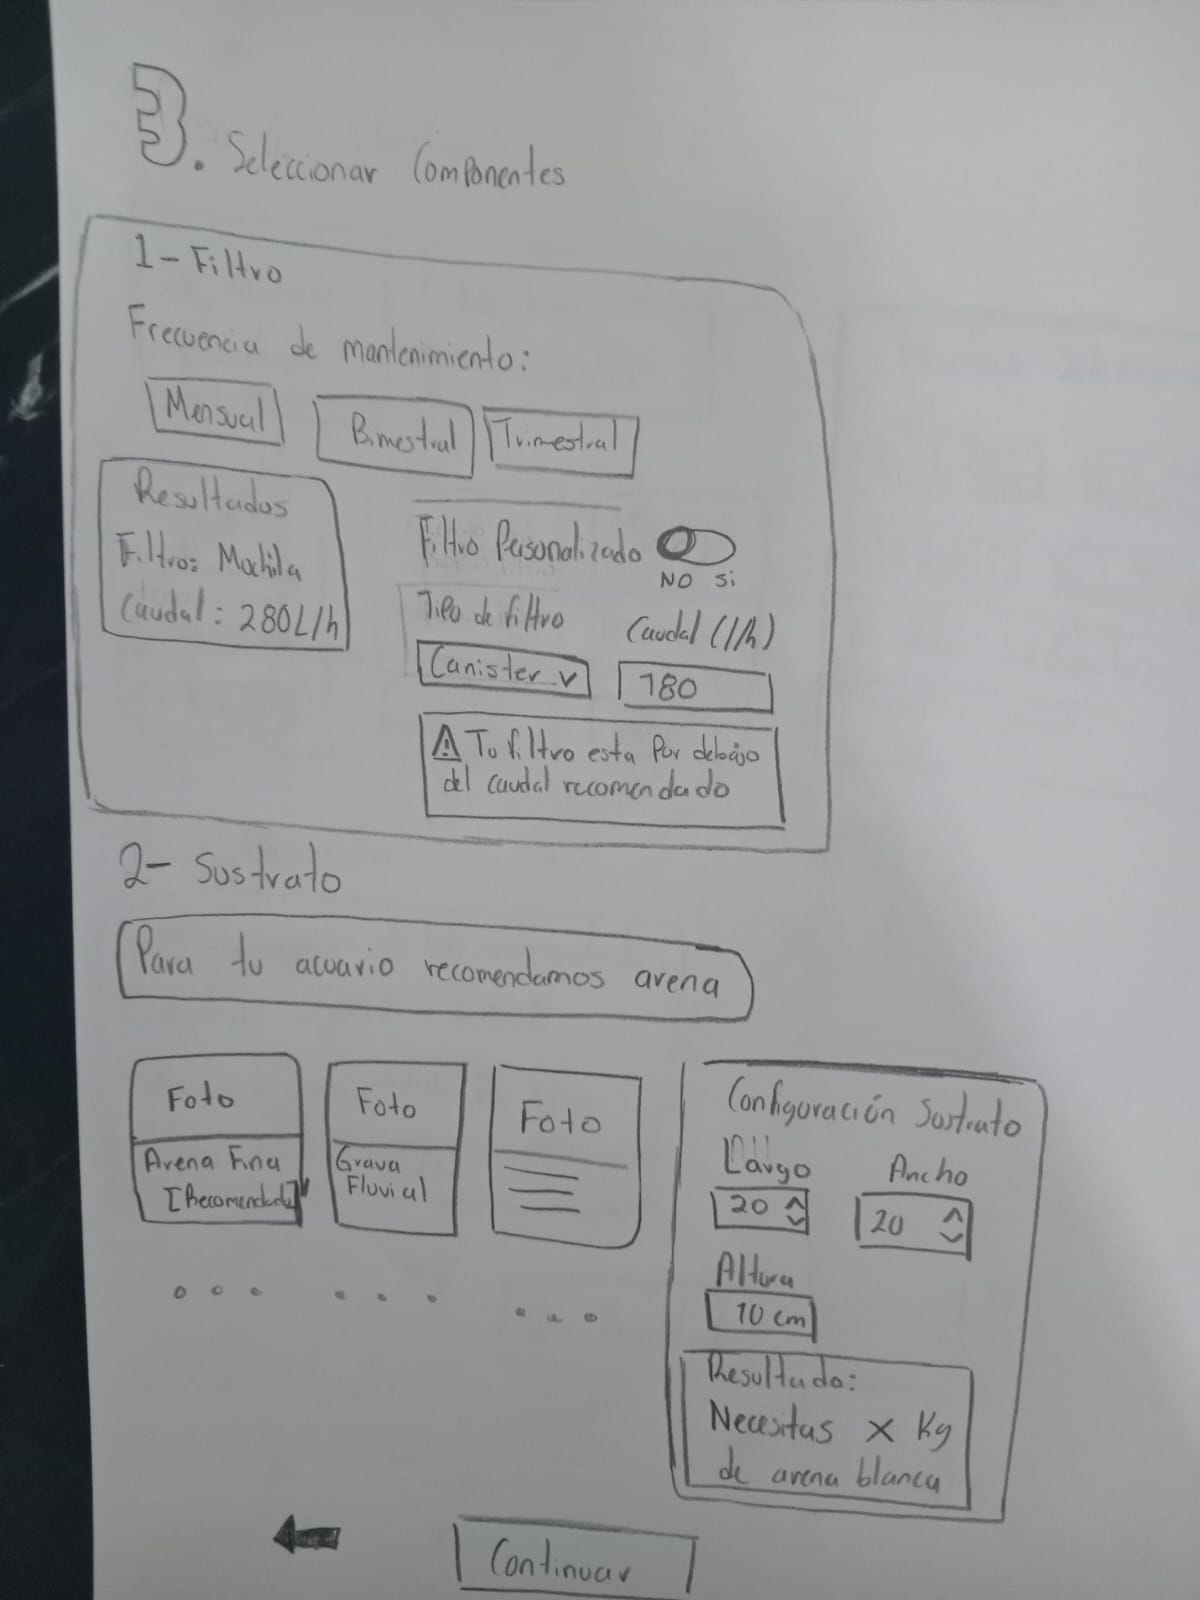 3. Seleccionar Componentes
1- Filtro
Frecuencia de mantenimiento:
Mensual
Bimestral
Trimestral
Resultados
Filtro: Mochila
Caudal: 280L/h
Filtro Personalizado
NO Si
Tipo de filtro
Caudal (l/h)
Canister
180
Tu filtro esta Por debajo
del caudal recomendado
2- Sustrato
Para tu acuario recomendamos arena
Foto
Arena Fina
[Recomendada]
Foto
Grava
Fluvial
Foto
Configuración Sustrato
Largo
Ancho
20
20
Altura
10 cm
Resultado:
Necesitas X Kg
de arena blanca
Continuar